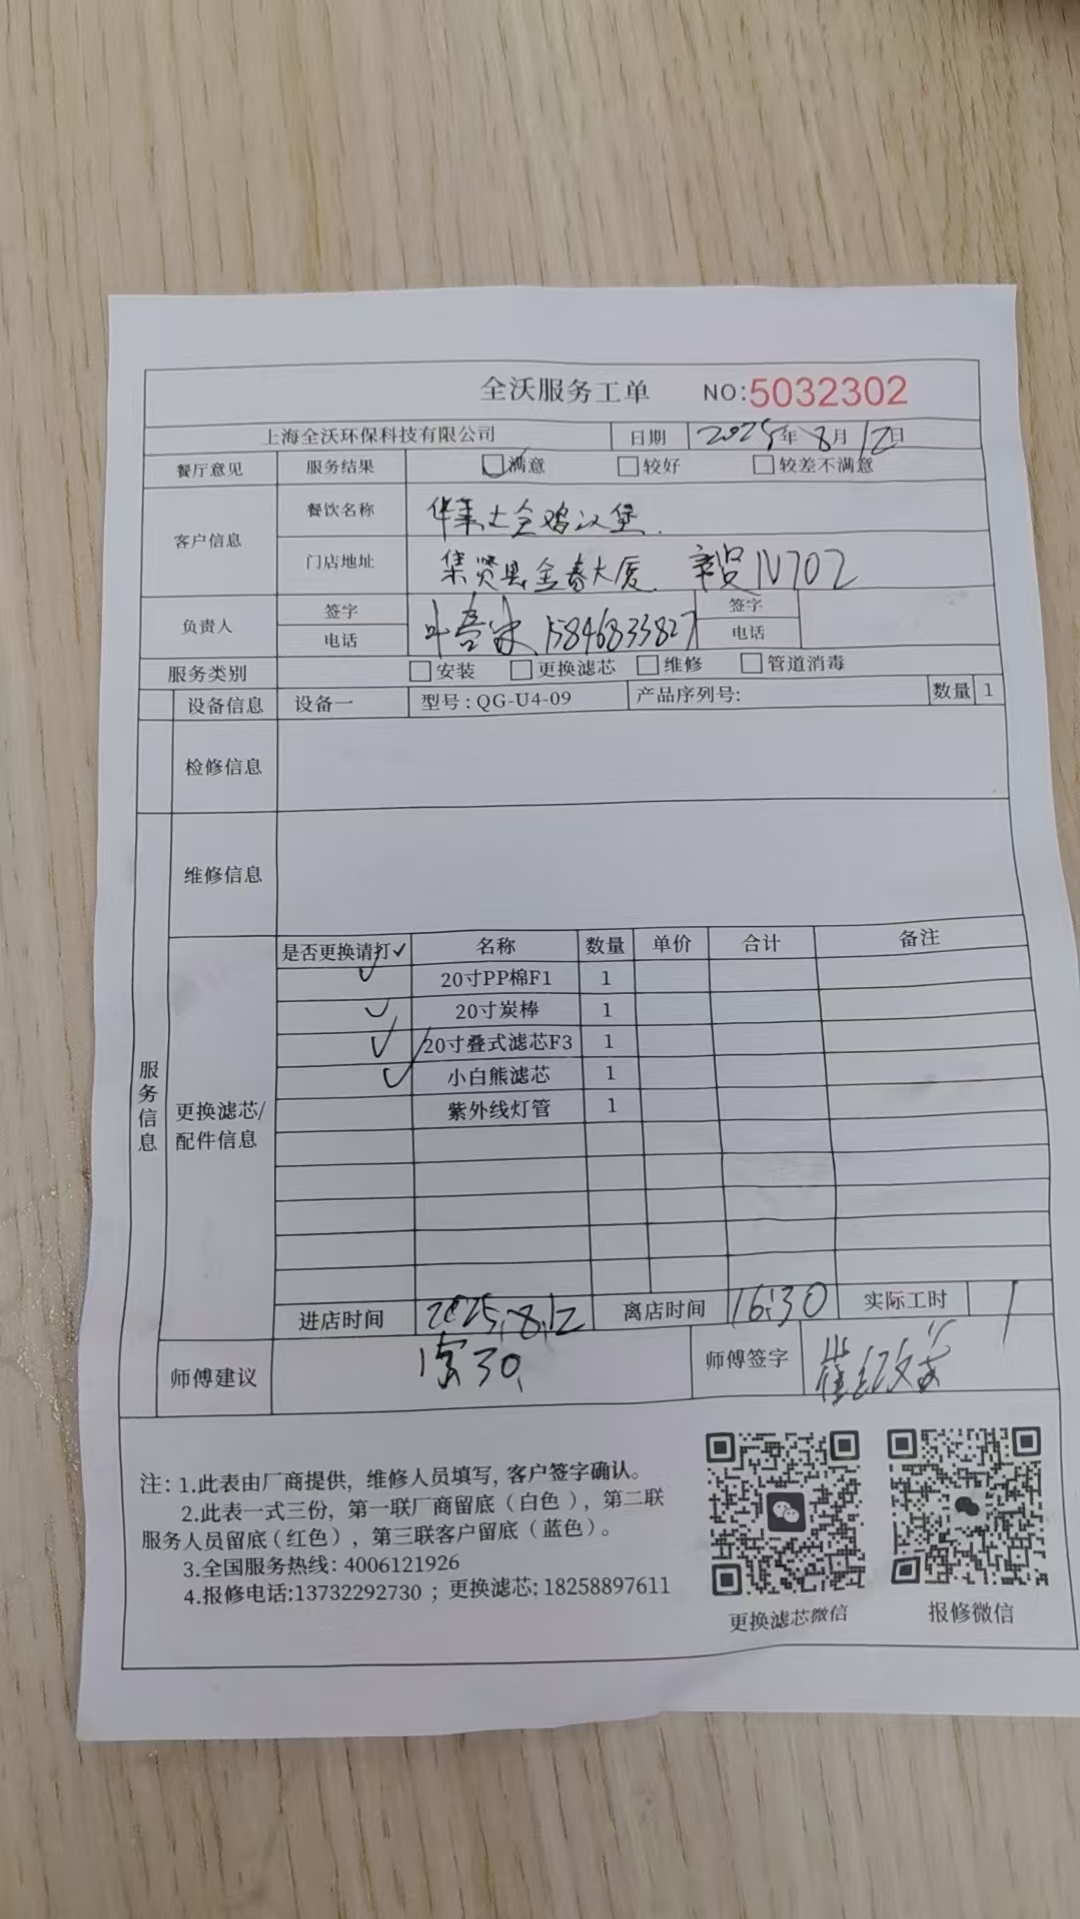 全沃服务工单 NO:5032302
上海全沃环保科技有限公司 日期 2025年8月12日
餐厅意见 服务结果 满意 较好 较差不满意
客户信息 餐饮名称 华莱士全鸡汉堡.
门店地址 集贤县金春大厦. N702
负责人 签字 签字
电话 15846833827 电话
服务类别 安装 更换滤芯 维修 管道消毒
设备信息 设备一 型号:QG-U4-09 产品序列号: 数量 1
检修信息
维修信息
服务信息
更换滤芯/
配件信息
是否更换请打✓ 名称 数量 单价 合计 备注
✓ 20寸PP棉F1 1
✓ 20寸炭棒 1
✓ 20寸叠式滤芯F3 1
✓ 小白熊滤芯 1
紫外线灯管 1
进店时间 2025.8.12 离店时间 16:30 实际工时 1
师傅建议 30 师傅签字
注:1.此表由厂商提供, 维修人员填写, 客户签字确认。
2.此表一式三份, 第一联厂商留底(白色), 第二联
服务人员留底(红色), 第三联客户留底(蓝色)。
3.全国服务热线: 4006121926
4.报修电话:13732292730 ; 更换滤芯: 18258897611
更换滤芯微信 报修微信